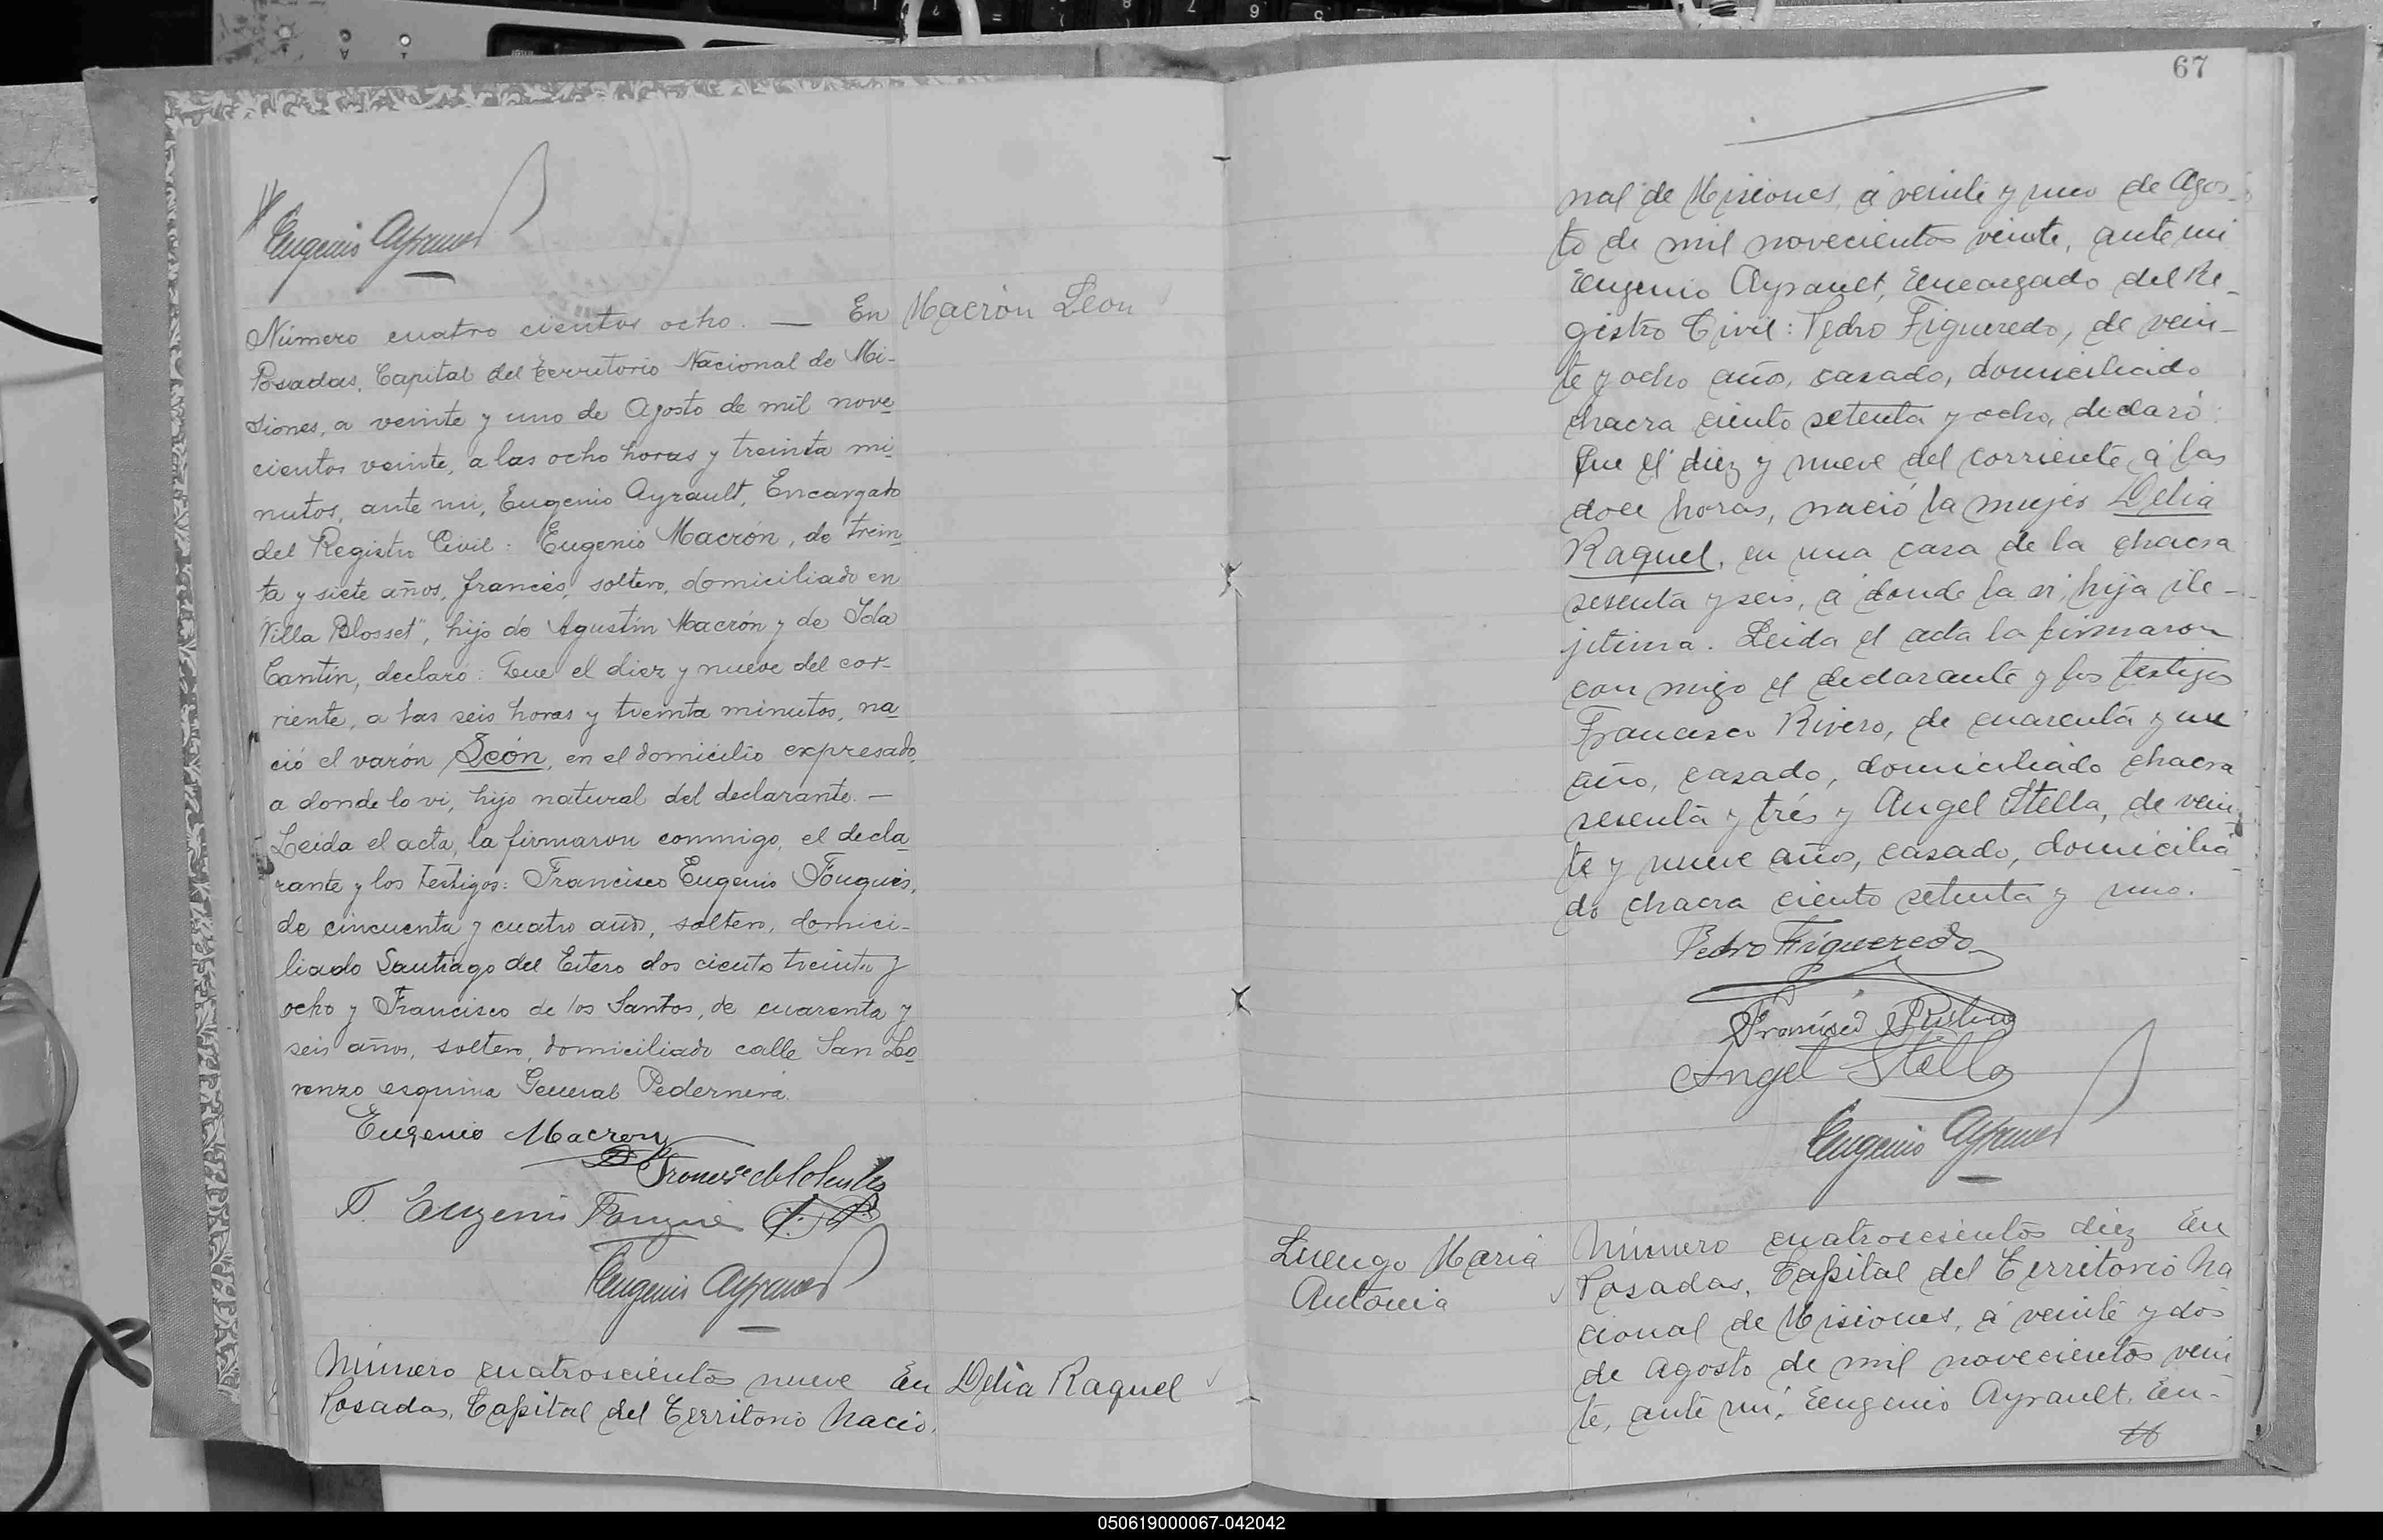 Eugenio Ayrault
Número cuatro cientos ocho. — En
Macrón León
Posadas, Capital del territorio Nacional de Mi-
siones, a veinte y uno de Agosto de mil nove
cientos veinte, a las ocho horas y treinta mi
nutos, ante mi, Eugenio Ayrault, Encargado
del Registro Civil: Eugenio Macrón, de trein
ta y siete años, francés, soltero, domiciliado en
"Villa Blosset", hijo de Agustín Macrón y de Ida
Cantin, declaró: Que el diez y nueve del cor-
riente, a las seis horas y treinta minutos, na
ció el varón León, en el domicilio expresado,
a donde lo vi, hijo natural del declarante. —
Leida el acta, la firmaron conmigo, el decla
rante y los testigos: Francisco Eugenio Fouques,
de cincuenta y cuatro años, soltero, domici-
liado Santiago del Estero dos ciento treinta y
ocho y Francisco de los Santos, de cuarenta y
seis años, soltero, domiciliado calle San Lo
renzo esquina General Pedernera.
Eugenio Macron
Franco de los Santos
F. Eugenio Fouques
Eugenio Ayrault
Número cuatroscientos nueve En
Delia Raquel
Posadas, Capital del Territorio Nacio.
67
nal de Misiones, á veinte y uno de Agos-
to de mil novecientos veinte, ante mi
Eugenio Ayrault, Encargado del Re-
gistro Civil: Pedro Figueredo, de vein-
te y ocho años, casado, domiciliado
chacra ciento setenta y ocho, declaró:
Que el diez y nueve del corriente á las
doce horas, nació la mujer Delia
Raquel, en una casa de la chacra
sesenta y seis, á donde la vi, hija ile-
jitima. Leida el acta la firmaron
con migo el declarante y los testigos
Francisco Rivero, de cuarenta y un
año, casado, domiciliado chacra
sesenta y trés y Angel Stella, de vein
te y nueve años, casado, domicilia
do chacra ciento setenta y uno.
Pedro Figueredo
Angel Stella
Eugenio Ayrault
Luengo Maria
Antonia
Número cuatroscientos diez En
Posadas, Capital del Territorio Na
cional de Misiones, á veinte y dos
de Agosto de mil novecientos vein
te, ante mi, Eugenio Ayrault, En-
050619000067-042042